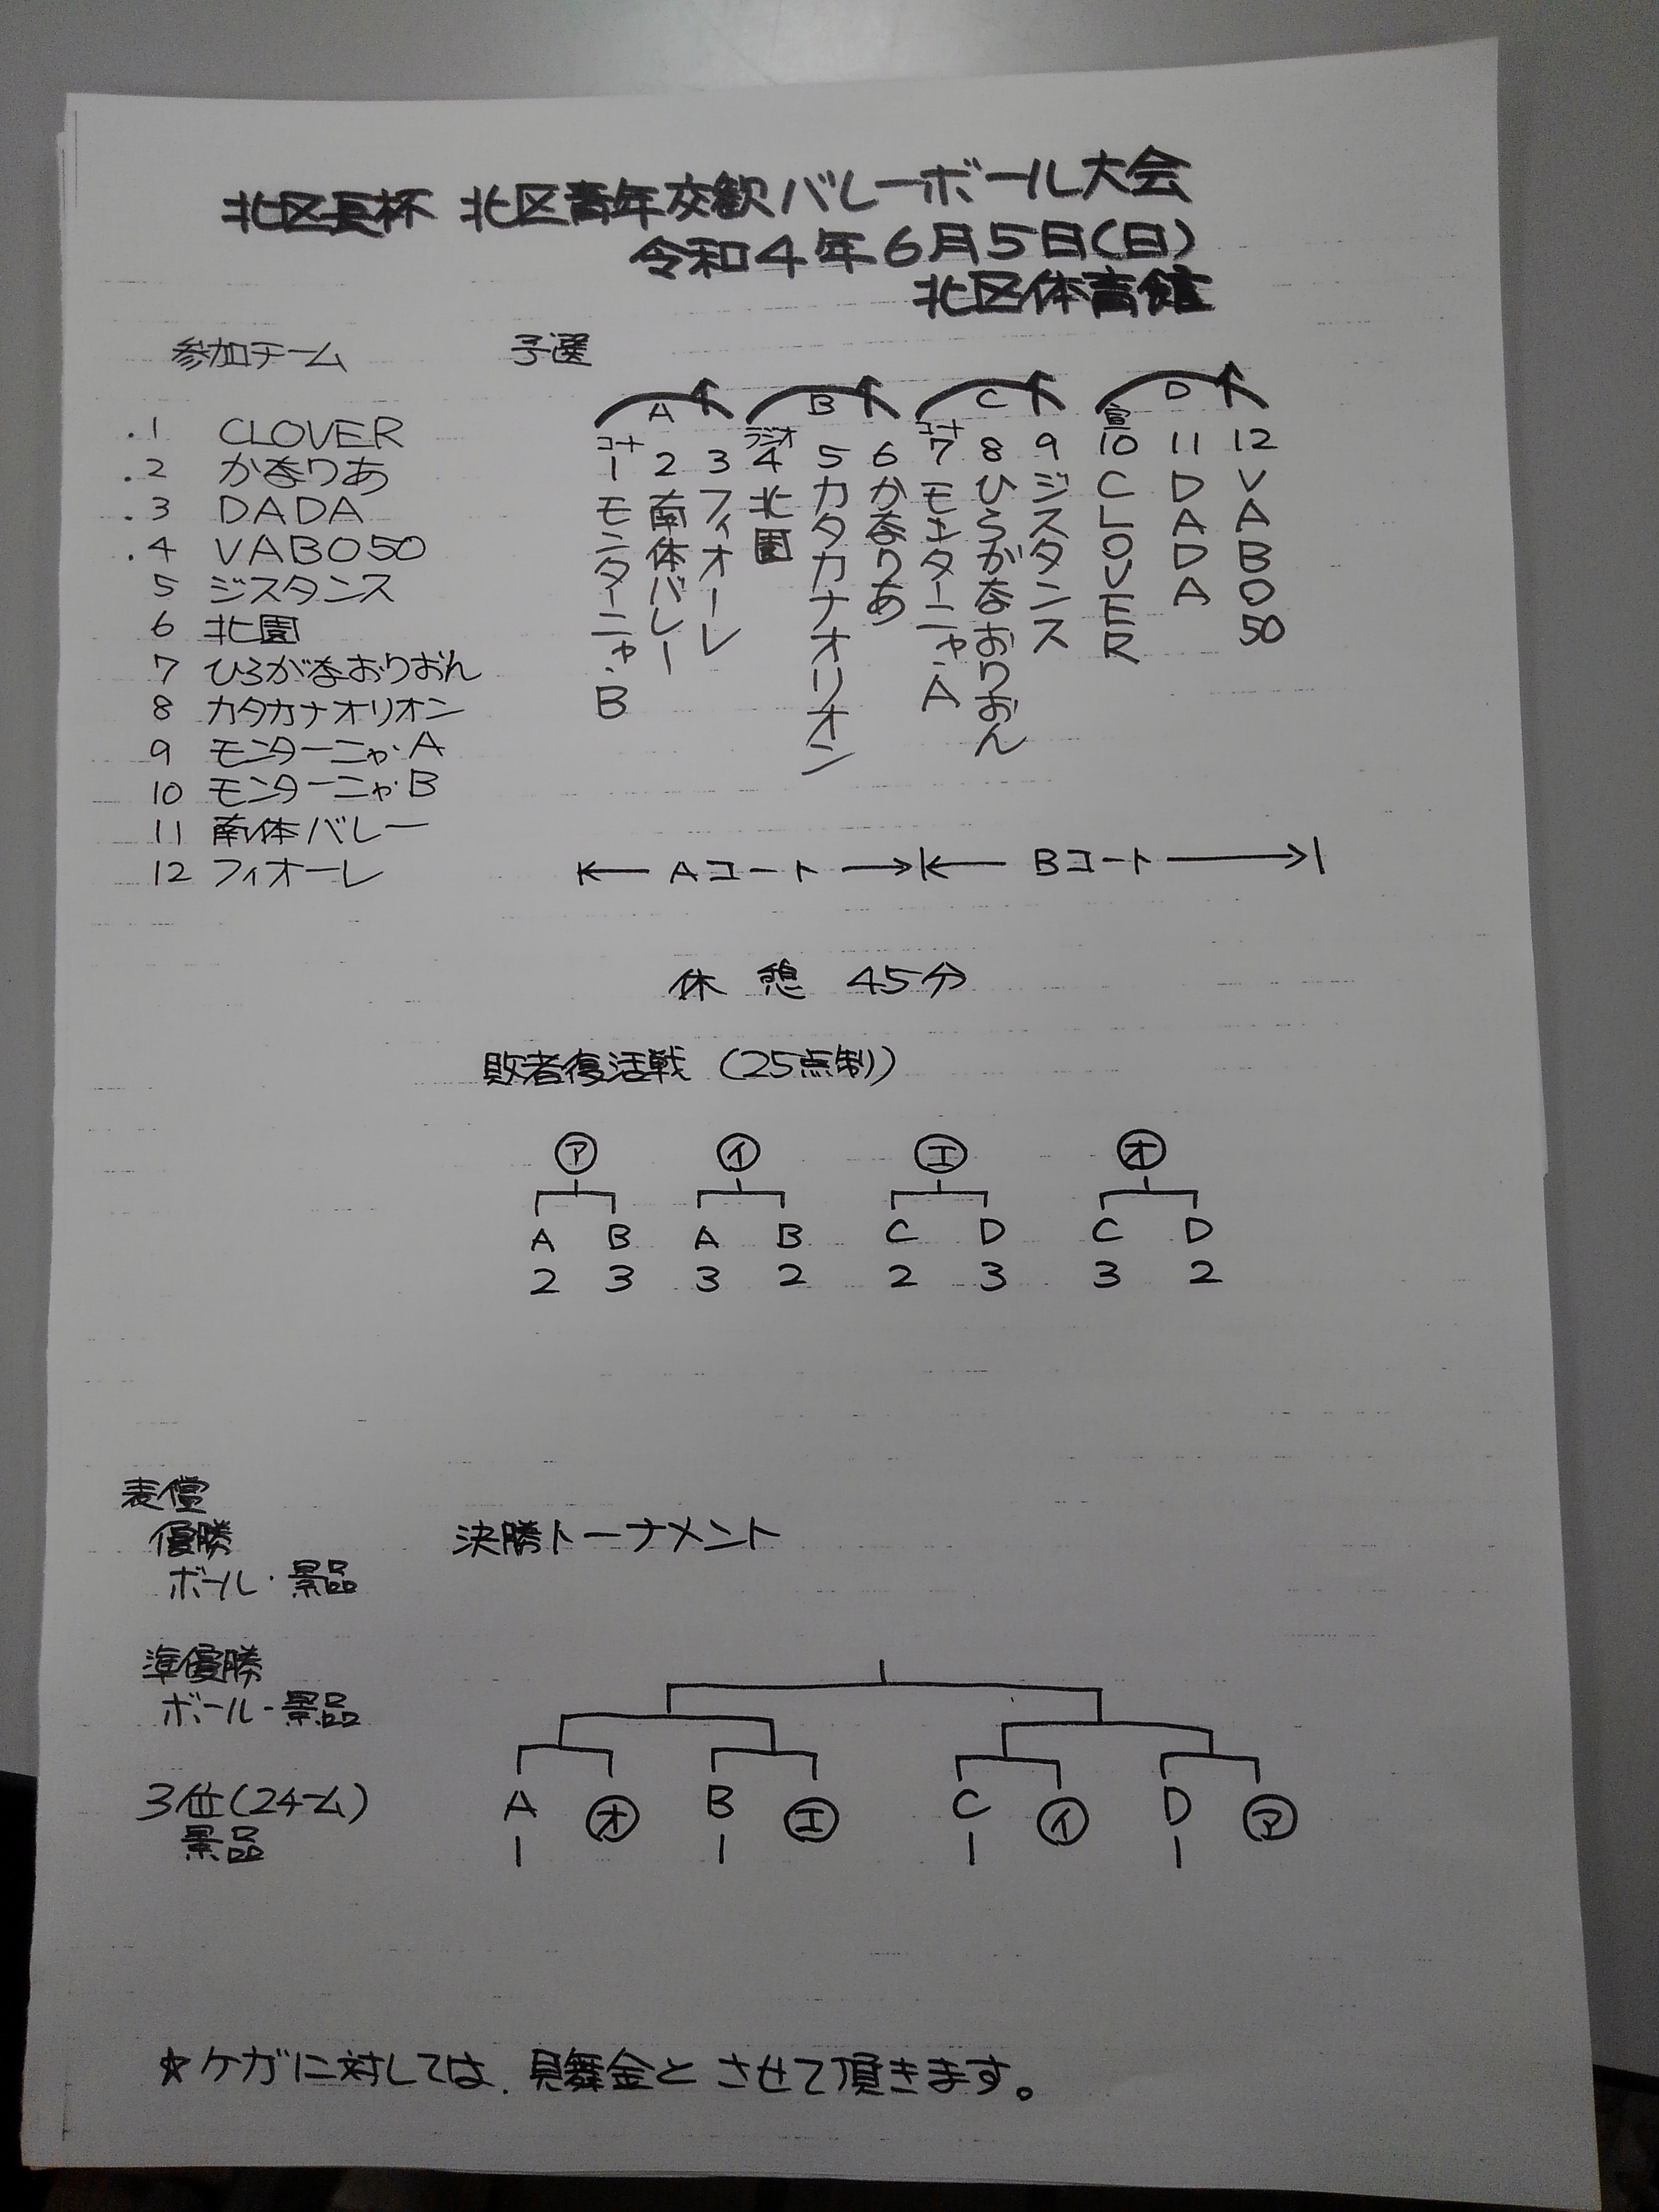 北区長杯 北区青年交歓バレーボール大会
令和4年6月5日(日)
北区体育館
参加チーム
1 CLOVER
2 かなりあ
3 DADA
4 VABO50
5 ジスタンス
6 北園
7 ひらがなおりおん
8 カタカナオリオン
9 モンターニャ・A
10 モンターニャ・B
11 南体バレー
12 フィオーレ
予選
A B C D
コート
1 モンターニャ・B
2 南体バレー
3 フィオーレ
ラジオ
4 北園
5 カタカナオリオン
6 かなりあ
コート
7 モンターニャ・A
8 ひらがなおりおん
9 ジスタンス
宣
10 CLOVER
11 DADA
12 VABO50
Aコート Bコート
休憩 45分
敗者復活戦 (25点制)
㋐ ㋑ ㋓ ㋔
A B A B C D C D
2 3 3 2 2 3 3 2
表償
優勝
ボール・景品
準優勝
ボール・景品
3位(2チーム)
景品
決勝トーナメント
A ㋔ B ㋓ C ㋑ D ㋐
1 1 1 1
☆ケガに対しては、見舞金とさせて頂きます。